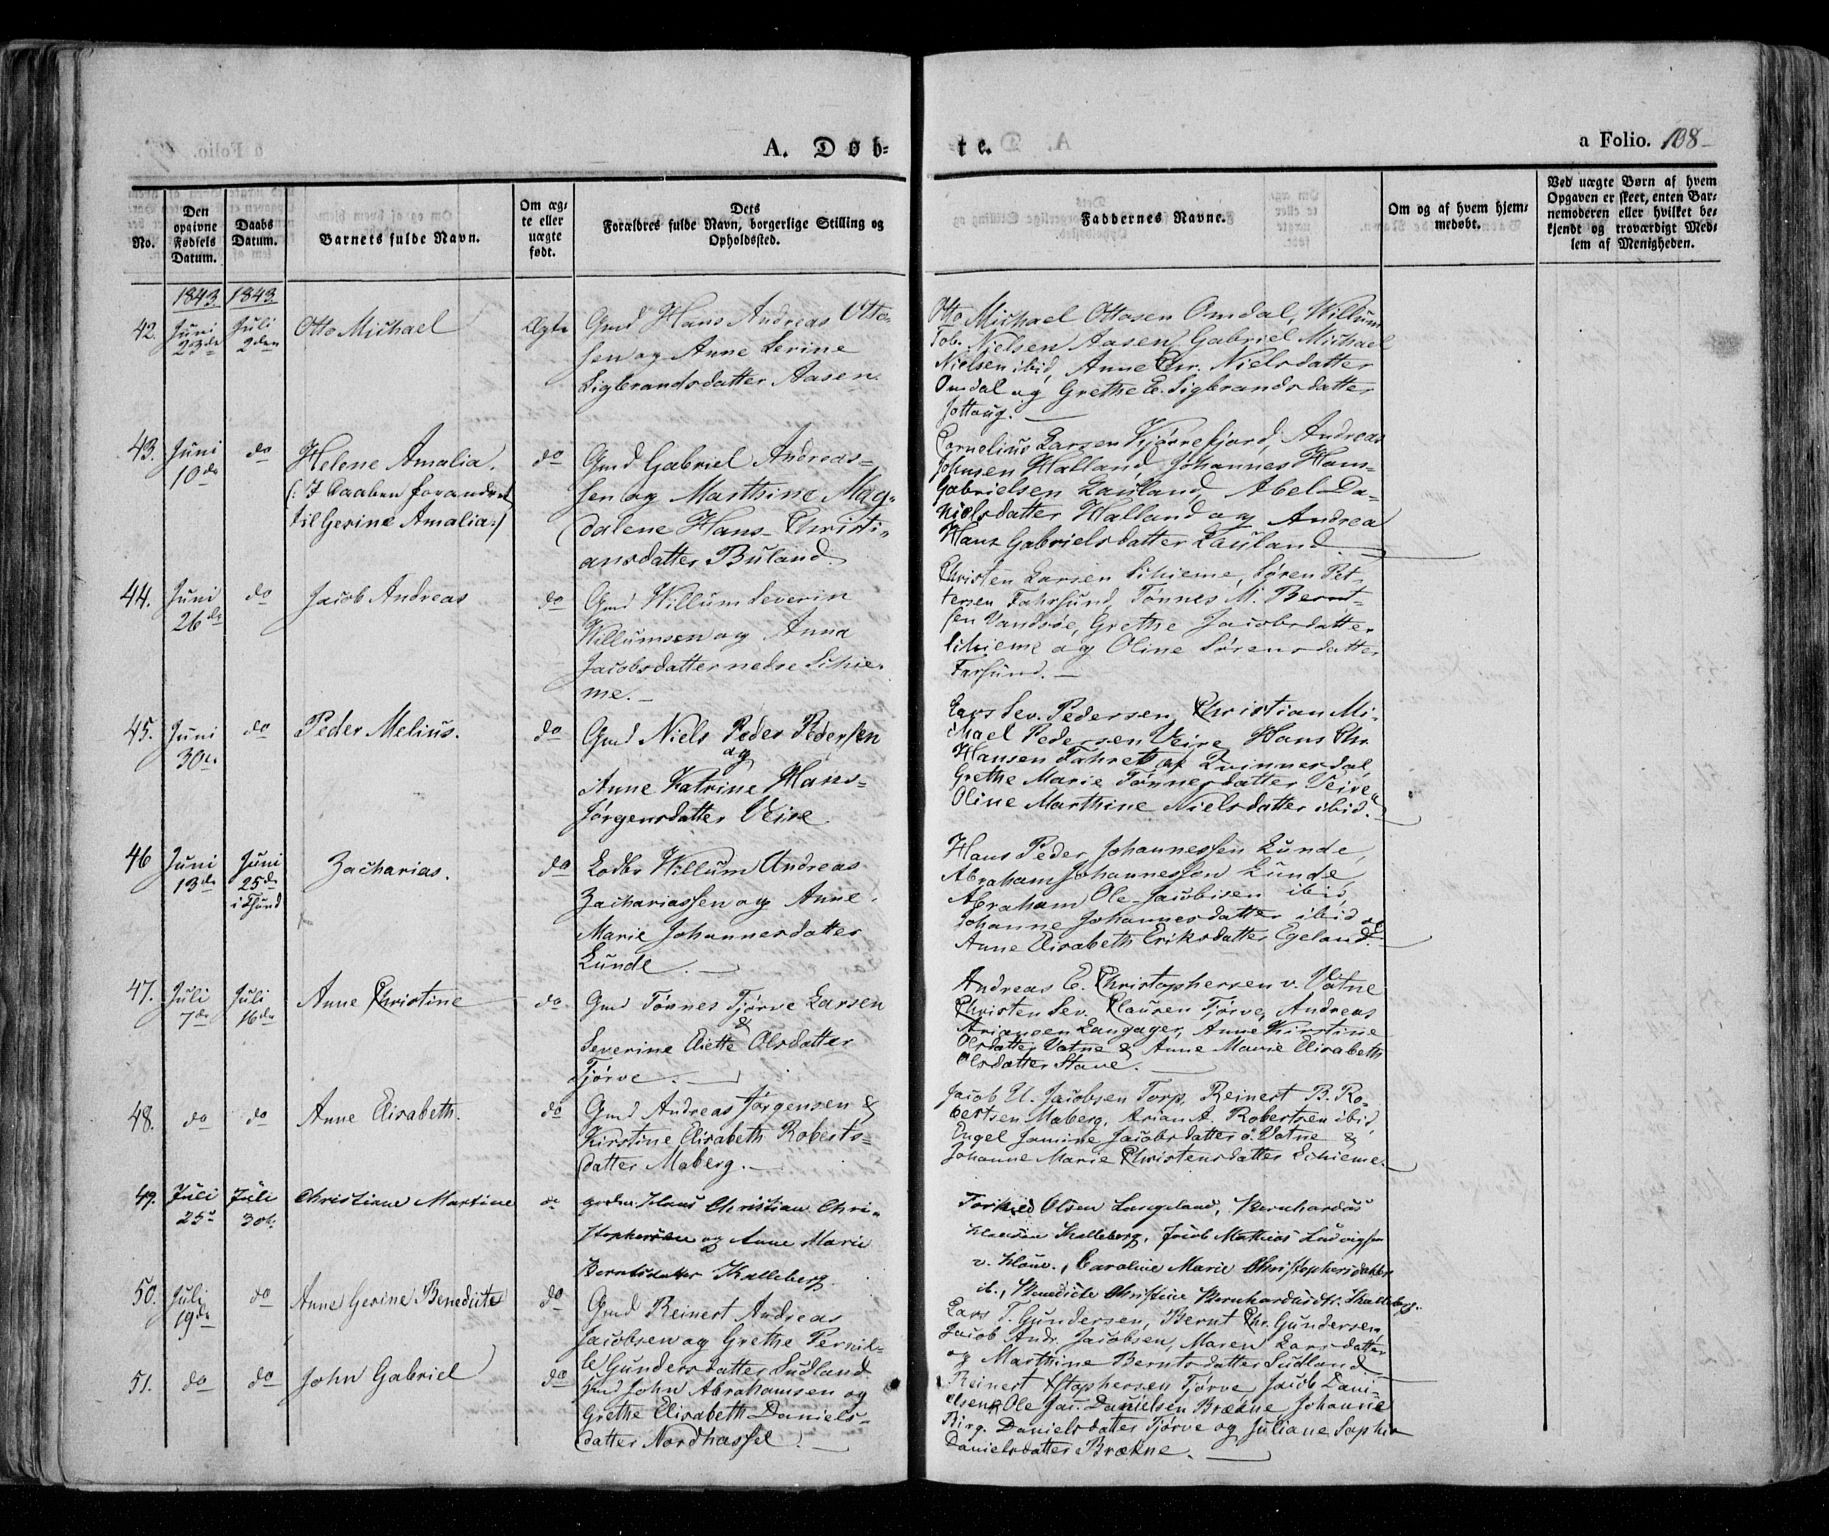 A. Døb-te.
a Folio. 108
No.
Den opgivne Fødsels Datum.
Daabs Datum.
Barnets fulde Navn.
Om ægte eller uægte født.
Dets Forældres fulde Navn, borgerlige Stilling og Opholdssted.
Faddernes Navne.
Om og af hvem hjemmedøbt.
Ved uægte Børn af hvem Opgaven er skeet, enten Barnemoderen eller hvilket bekjendt og troværdigt Medlem af Menigheden.
1843 1843
42. Juni 23de Juli 2den Otto Michael Ægte
Gmd Hans Andreas Otto-
sen og Anne Serine
Sigbrandsdatter Aasen
Otto Michael Ottosen Omdal, Willum
Tob. Nielsen Aasen, Gabriel Michael
Nielsen ibid, Anne Chr. Nielsdatter
Omdal og Grethe E. Sigbrandsdatter
43. Juni 10de do Helene Amalia.
(: I Daaben forandret
til Gerine Amalia :)
do
Gmd Gabriel Andreas-
sen og Marthine Mag-
dalene Hans Christi-
ansdatter Buland.
Cornelius Larsen Kjørrefjord, Andreas
Johnsen Halland, Johannes Hans
Gabrielsen Lauland, Abel Da-
nielsdatter Halland og Andrea
Hans Gabrielsdatter Lauland.
44. Juni 26de do Jacob Andreas do
Gmd Willum Severin
Willumsen og Anna
Jacobsdatter nedre Skie-
me.
Christen Larsen Skieme, Søren Pet-
tersen Fahrsund, Tønnes M. Bernt-
sen Vandsøe, Grethe Jacobsdatter
Skieme og Oline Sørensdatter
Farsund.
45. Juni 30te do Peder Melius. do
Gmd Niels Peder Pedersen
og
Anne Katrine Hans-
Jørgensdatter Veire.
Lars Sev. Pedersen, Christian Mi-
chael Pedersen Veire, Hans Chr.
Hansen Fahret af Qvinnesdal,
Grethe Marie Tønnesdatter Veire
Oline Marthine Nielsdatter ibid.
46 Juni 13de Juni 25de i Fsund Zacharias. do
Lodbr Willum Andreas
Zachariassen og Anne
Marie Johannesdatter
Lunde.
Hans Peder Johannessen Lunde,
Abraham Johannessen Lunde,
Abraham Ole Jacobsen ibid,
Johanne Johannesdatter ibid og
Anne Elisabeth Eriksdatter Egeland.
47. Juli 7de Juli 16de Anne Christine do
Gmd Tønnes Tjørve Larsen
&
Severine Eliette Olsdatter
Tjørve.
Andreas E. Christophersen v. Vatne
Christen Sev. Clausen Tjørve, Andreas
Ariansen Langager, Anne Kirstine
Olsdatter Vatne & Anne Marie Elisabeth
Olsdatter Stave.
48. do do Anne Elisabeth. do
Gmd Andreas Jørgensen &
Kirstine Elisabeth Roberts-
datter Maberg.
Jacob U. Jacobsen Torp, Reinert B. Ro-
bertsen Maberg, Arian A. Robertsen ibid,
Engel Jomine Jacobsdatter ö. Vatne &
Johanne Marie Christensdatter Skieme.
49. Juli 25d Juli 30te Christiane Martine do
Claus Christian Chri-
stophersen og Anne Marie
Berntsdatter Kalleberg.
Torkild Olsen Langeland, Bernhardus
Clausen Kalleberg, Jacob Mathias Ludvigsen
v. Hauve, Caroline Marie Christophersdatter
ib., Benedicte Christine Bernhardusdtr. Kalleberg.
50. Juli 19de do Anne Gerine Benedicte do
Gmd Reinert Andreas
Jacobsen og Grethe Pernil-
le Gundersdatter Sudland
Lars T. Gundersen, Bernt Chr. Gundersen,
Jacob Andr. Jacobsen, Maren Larsdatter
og Marthine Berntsdatter Sudland
51. do do John Gabriel do
Gmd John Abrahamsen og
Grethe Elisabeth Daniels-
datter Nordhassel.
Reinert Stophersen Tjørve, Jacob Dani-
elsen & Ole Jac. Danielsen Brækne, Johanne
Birg. Danielsdatter Tjørve og Juliane Sophie
Danielsdatter Brækne.